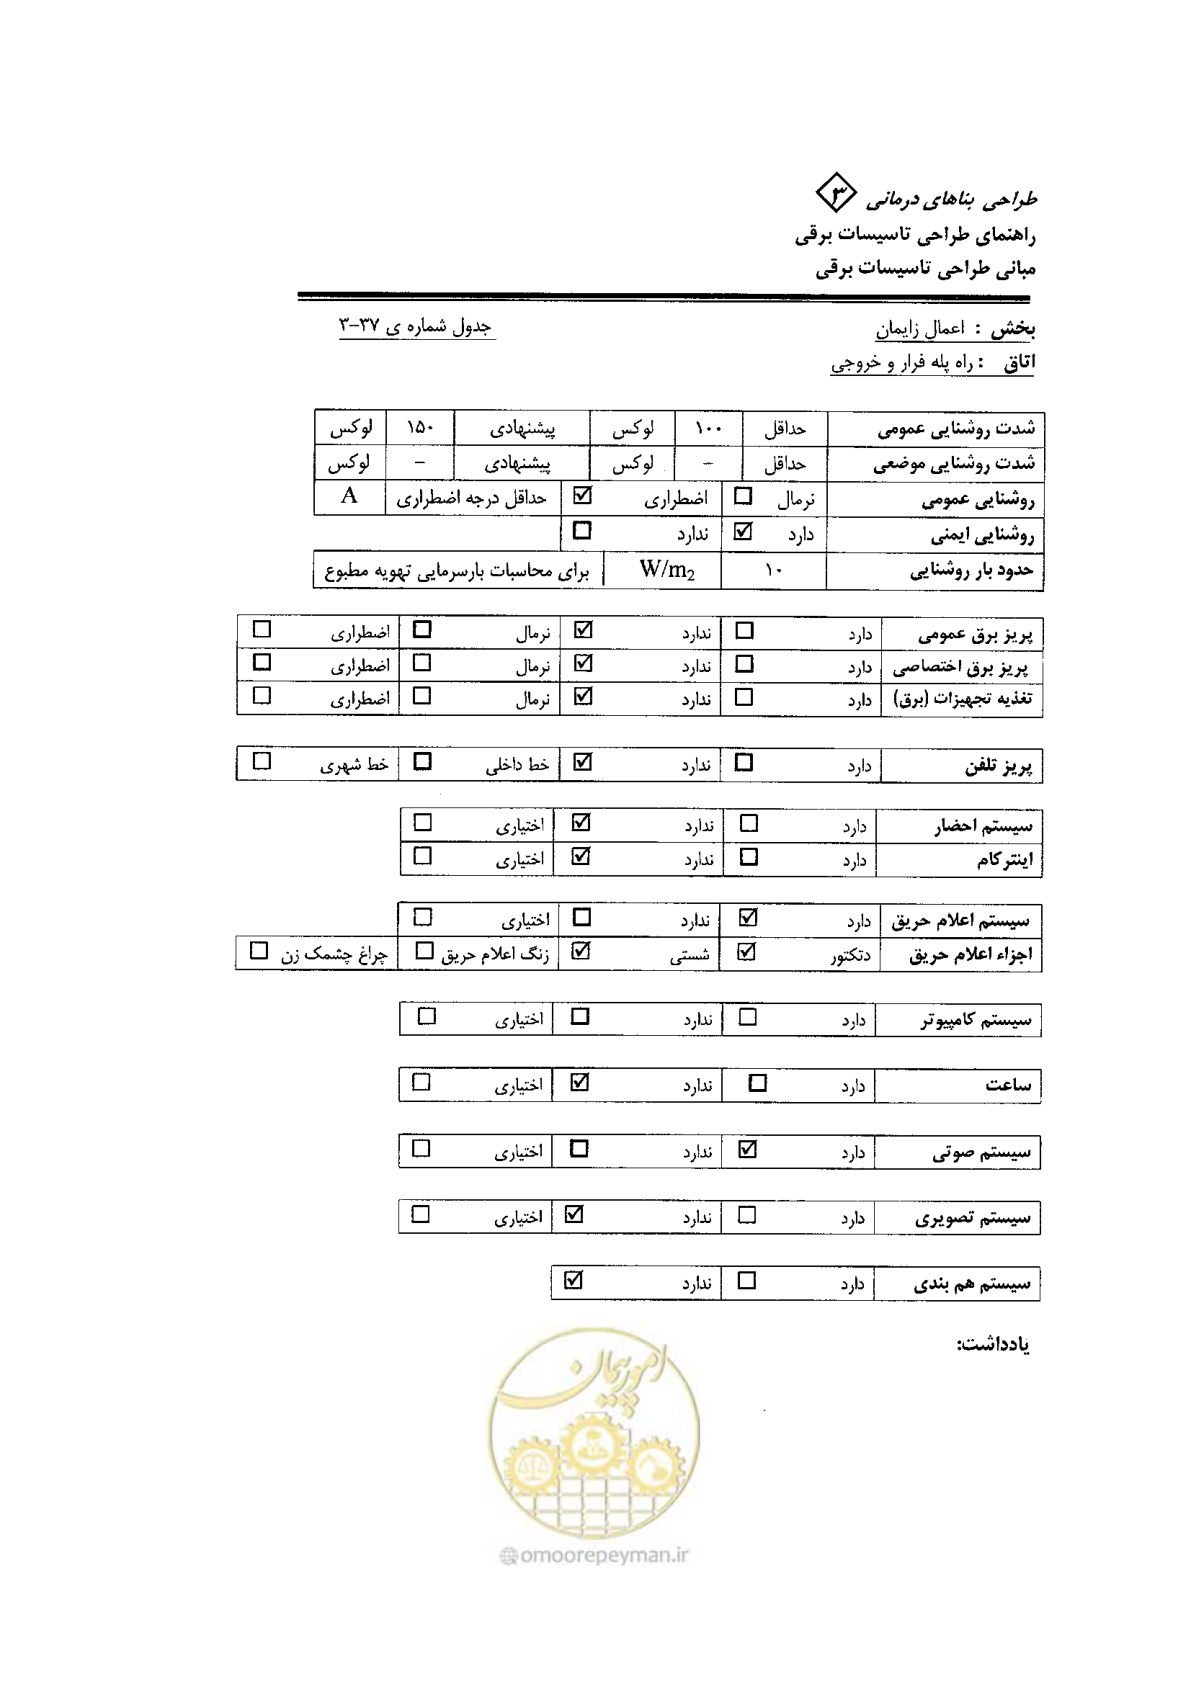 طراحی بناهای درمانی ۳
راهنمای طراحی تاسیسات برقی
مبانی طراحی تاسیسات برقی
بخش : اعمال زایمان جدول شماره ی ۳۷-۳
اتاق : راه پله فرار و خروجی
شدت روشنایی عمومی حداقل ۱۰۰ لوکس پیشنهادی ۱۵۰ لوکس
شدت روشنایی موضعی حداقل – لوکس پیشنهادی – لوکس
روشنایی عمومی نرمال ☐ اضطراری ☑ حداقل درجه اضطراری A
روشنایی ایمنی دارد ☑ ندارد ☐
حدود بار روشنایی ۱۰ W/m2 برای محاسبات بارسرمایی تهویه مطبوع
پریز برق عمومی دارد ☐ ندارد ☑ نرمال ☐ اضطراری ☐
پریز برق اختصاصی دارد ☐ ندارد ☑ نرمال ☐ اضطراری ☐
تغذیه تجهیزات (برق) دارد ☐ ندارد ☑ نرمال ☐ اضطراری ☐
پریز تلفن دارد ☐ ندارد ☑ خط داخلی ☐ خط شهری ☐
سیستم احضار دارد ☐ ندارد ☑ اختیاری ☐
اینترکام دارد ☐ ندارد ☑ اختیاری ☐
سیستم اعلام حریق دارد ☑ ندارد ☐ اختیاری ☐
اجزاء اعلام حریق دتکتور ☑ شستی ☑ زنگ اعلام حریق ☐ چراغ چشمک زن ☐
سیستم کامپیوتر دارد ☐ ندارد ☐ اختیاری ☐
ساعت دارد ☐ ندارد ☑ اختیاری ☐
سیستم صوتی دارد ☑ ندارد ☐ اختیاری ☐
سیستم تصویری دارد ☐ ندارد ☑ اختیاری ☐
سیستم هم بندی دارد ☐ ندارد ☑
یادداشت:
امور پیمان
@omoorepeyman.ir